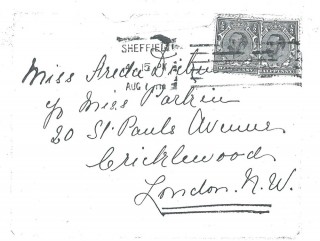 SHEFFIELD
AUG
Miss
c/o Miss Parkin
20 St Pauls Avenue
Cricklewood
London. N.W.